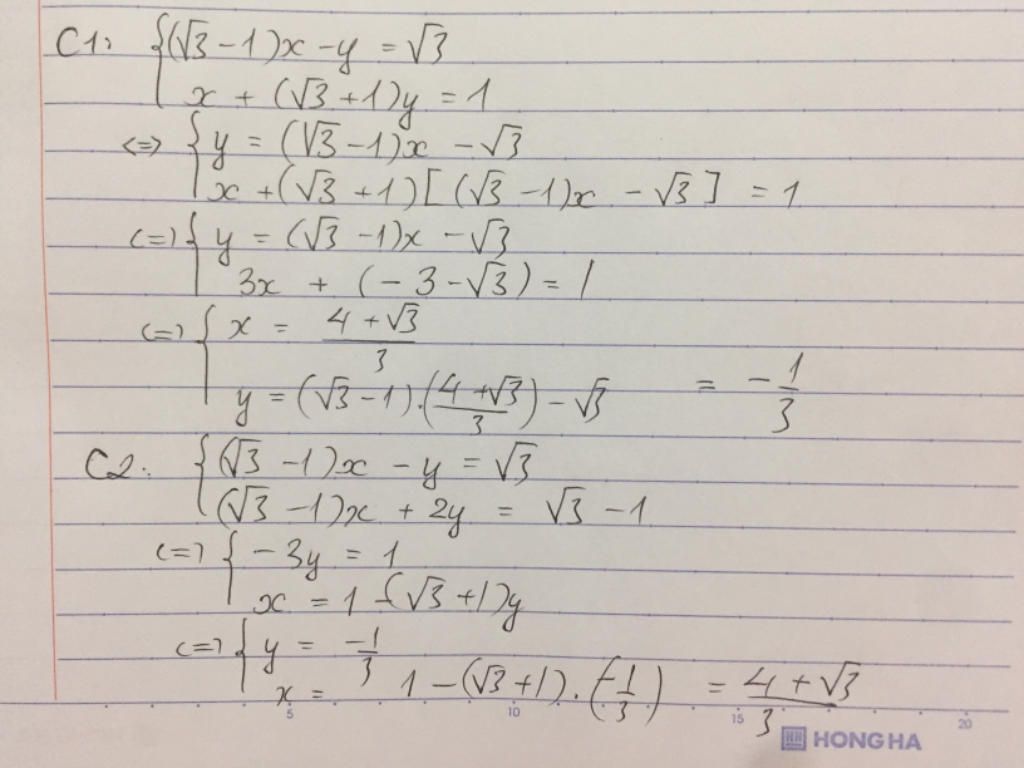 C1: {(√3 - 1)x - y = √3
x + (√3 + 1)y = 1
<=> {y = (√3 - 1)x - √3
x + (√3 + 1)[(√3 - 1)x - √3] = 1
(=) {y = (√3 - 1)x - √3
3x + (-3 - √3) = 1
(=) {x = (4 + √3)/3
y = (√3 - 1).((4 + √3)/3) - √3 = -1/3
C2: {(√3 - 1)x - y = √3
(√3 - 1)x + 2y = √3 - 1
(=) {-3y = 1
x = 1 - (√3 + 1)y
(=) {y = -1/3
x = 1 - (√3 + 1).(-1/3) = (4 + √3)/3
5 10 15 20
HH HONG HA